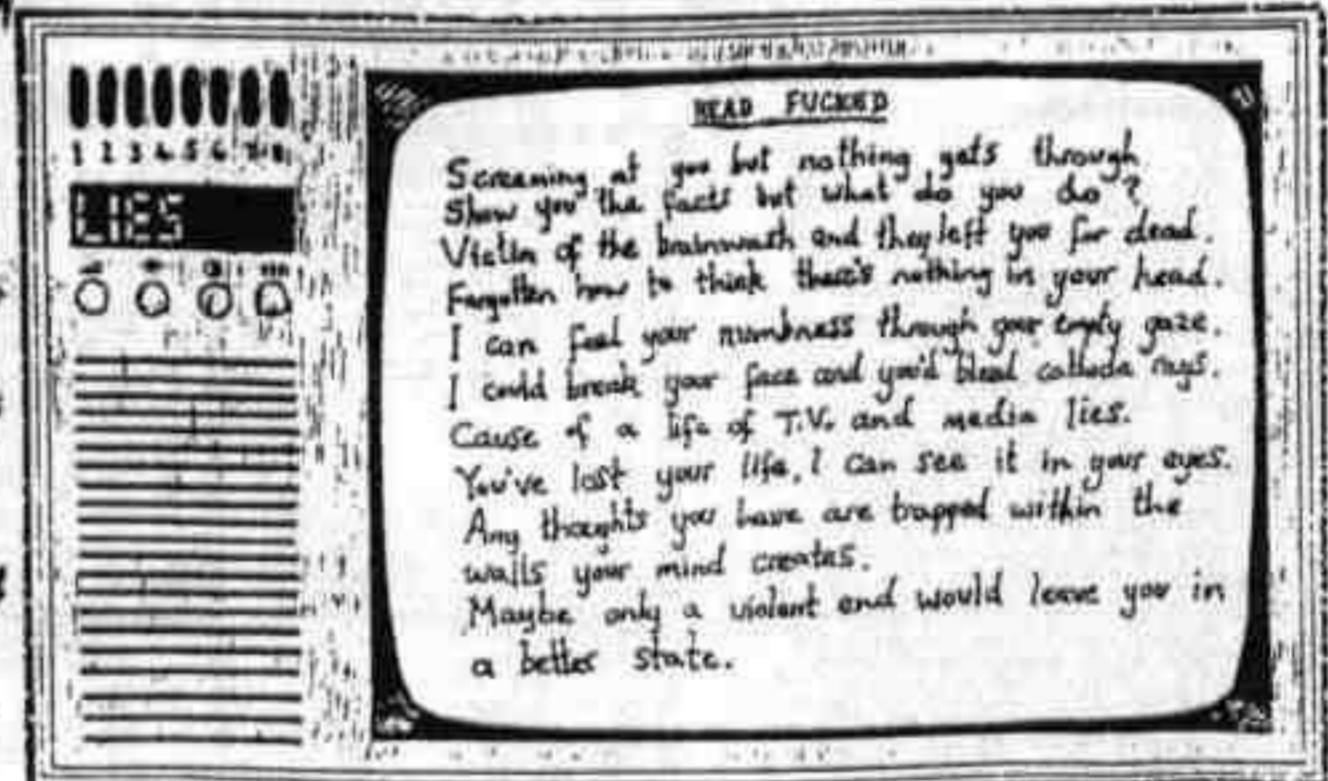 1 2 3 4 5 6 7 8
LIES
HEAD FUCKED
Screaming at you but nothing gets through
Show you the facts but what do you do ?
Victim of the brainwash and they left you for dead.
Forgotten how to think there's nothing in your head.
I can feel your numbness through your empty gaze.
I could break your face and you'd bleed cathode rays.
Cause of a life of T.V. and media lies.
You've lost your life, I can see it in your eyes.
Any thoughts you have are trapped within the
walls your mind creates.
Maybe only a violent end would leave you in
a better state.